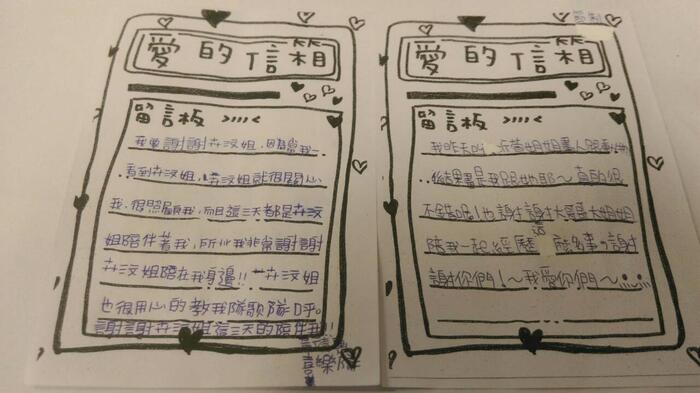 愛的信箱
留言板 >>>><
我要謝謝卉汶姐,因為當我一
看到卉汶姐,卉汶姐就很關心
我,很照顧我,而且這三天都是卉汶
姐陪伴著我,所以我非常謝謝
卉汶姐陪在我身邊!!卉汶姐
也很用心的教我隊歌隊呼。
謝謝卉汶姐這三天的陪伴我!!
喜樂
愛的信箱
留言板 >>>><
我昨天叫
結果還是我跟他耶~真的很
不錯呢!也謝謝大哥哥大姐姐
陪我一起經歷這
謝你們!~我愛你們~